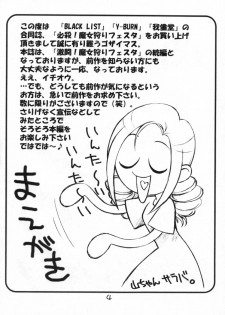 この度は「BLACK LIST」「Y-BURN」「我集堂」の
合同誌、「必殺!魔女狩りフェスタ」をお買い上げ
頂きまして誠に有り難うゴザイマス。
本誌は、「激闘!魔女狩りフェスタ」の続編と
なっておりますが、前作を知らない方にも
大丈夫なように一応、作られております。
ええ、イチオウ。
…でも、どうしても前作が気になるという
方は、急いで前作をお求め下さい。
数に限りがございますので(笑)
さりげなく宣伝などして
みたところで
そろそろ本編を
お楽しみ下さい
ではでは〜♪
まえがき
いんた〜
いんた〜
山ちゃん サラバ。
4